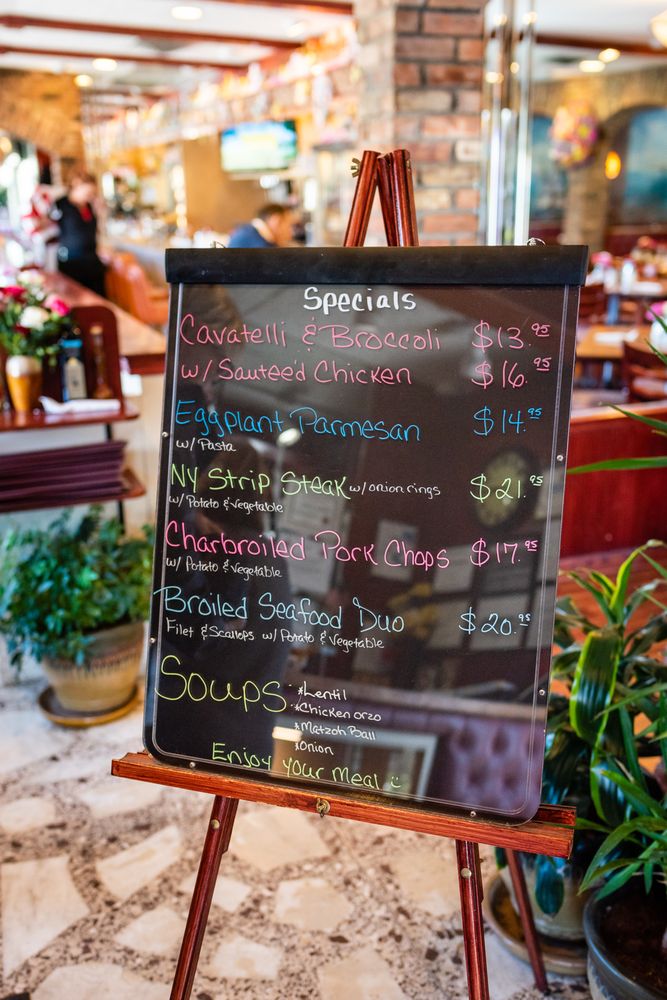 Specials
Cavatelli & Broccoli $13.95
w/ Sauteé'd Chicken $16.95
Eggplant Parmesan $14.95
w/ Pasta
NY Strip Steak w/ onion rings $21.95
w/ Potato & Vegetable
Charbroiled Pork Chops $17.95
w/ Potato & Vegetable
Broiled Seafood Duo $20.95
Filet & Scallops w/ Potato & Vegetable
Soups: *Lentil
*Chicken orzo
*Matzoh Ball
*Onion
Enjoy your meal :)